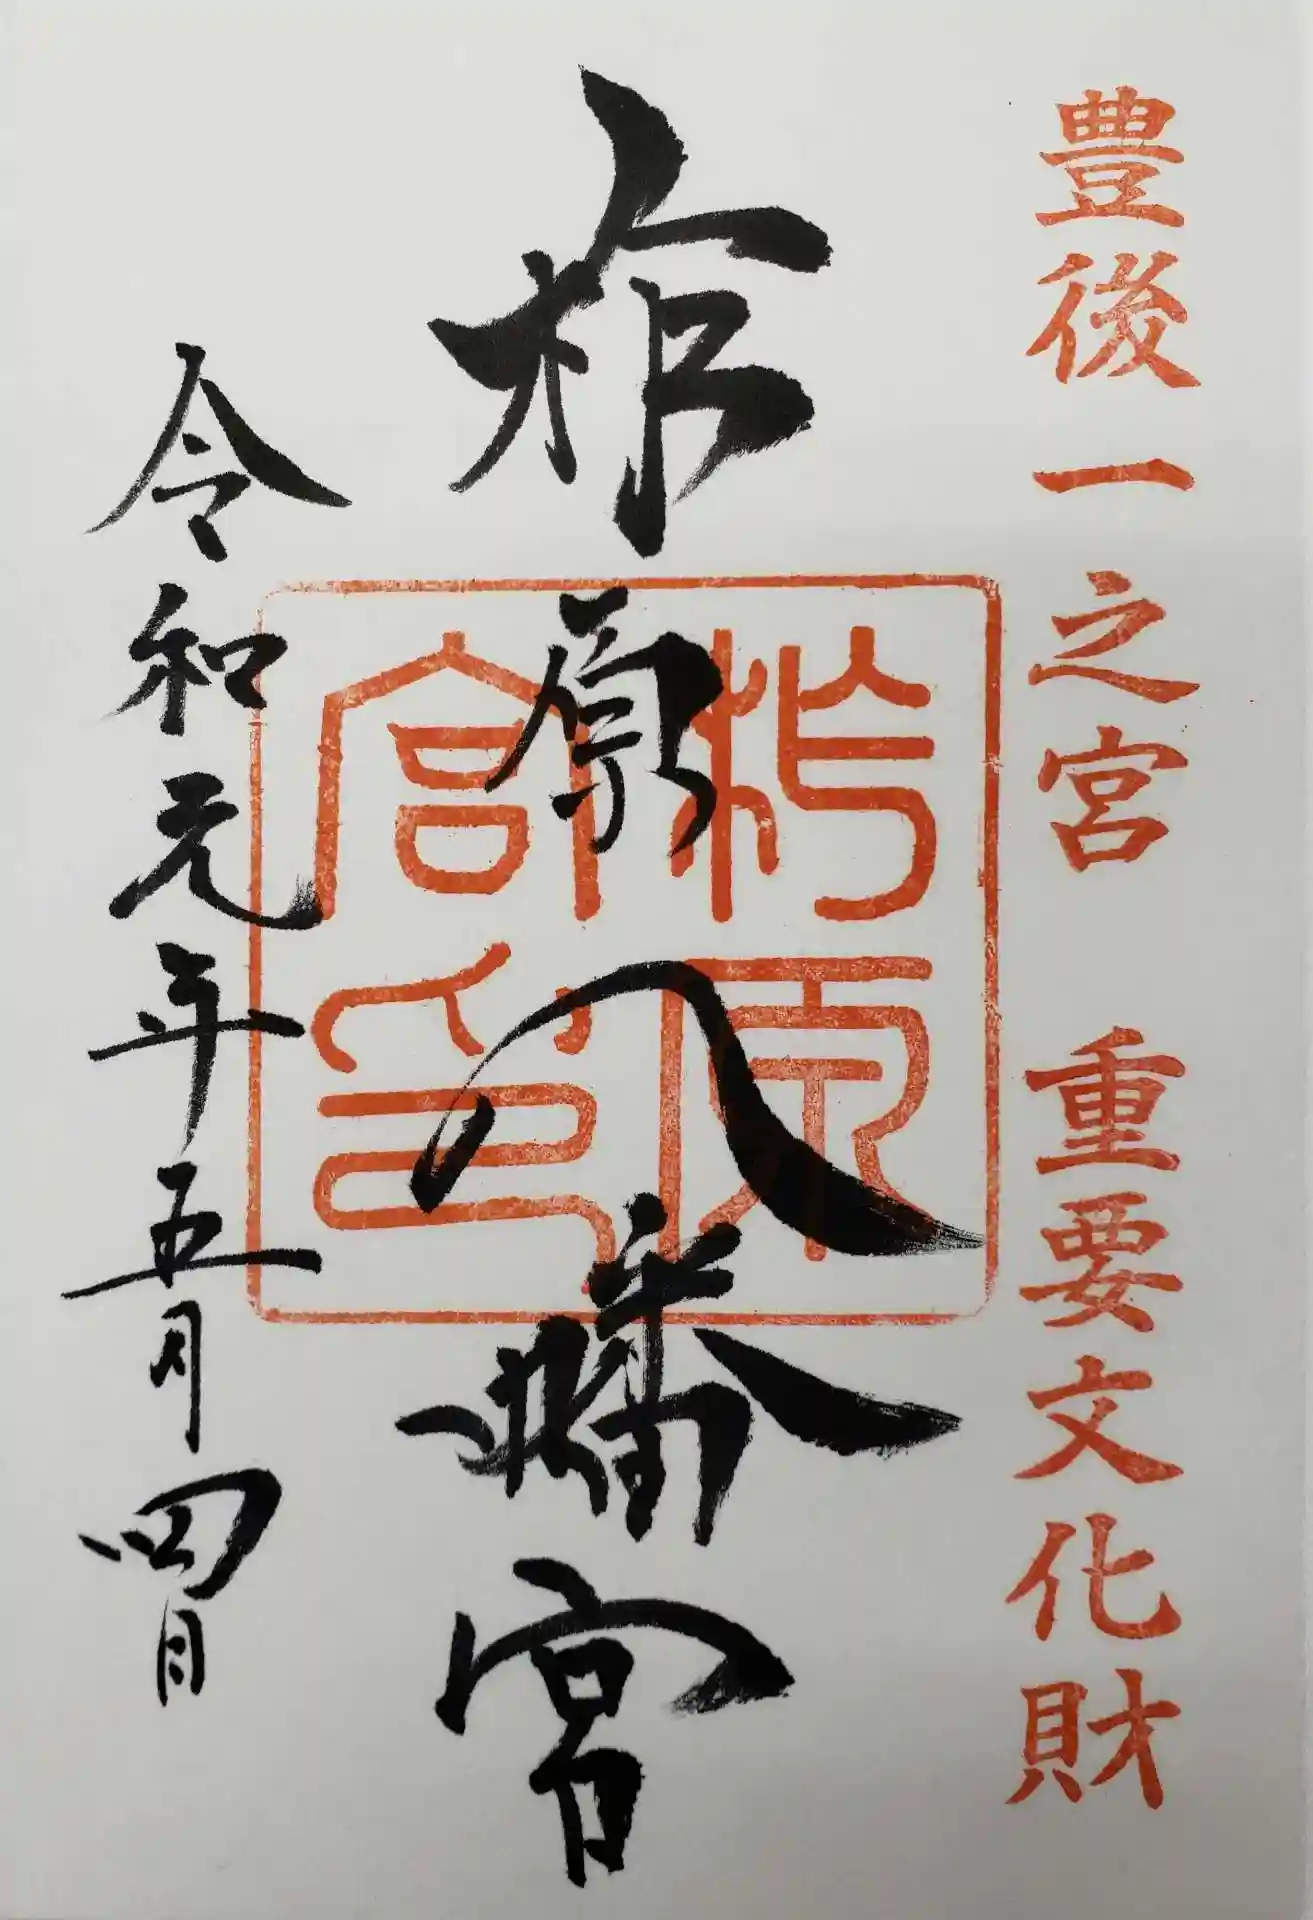 豊後一之宮 重要文化財
柞原八幡宮
柞原
宮印
令和元年五月四日